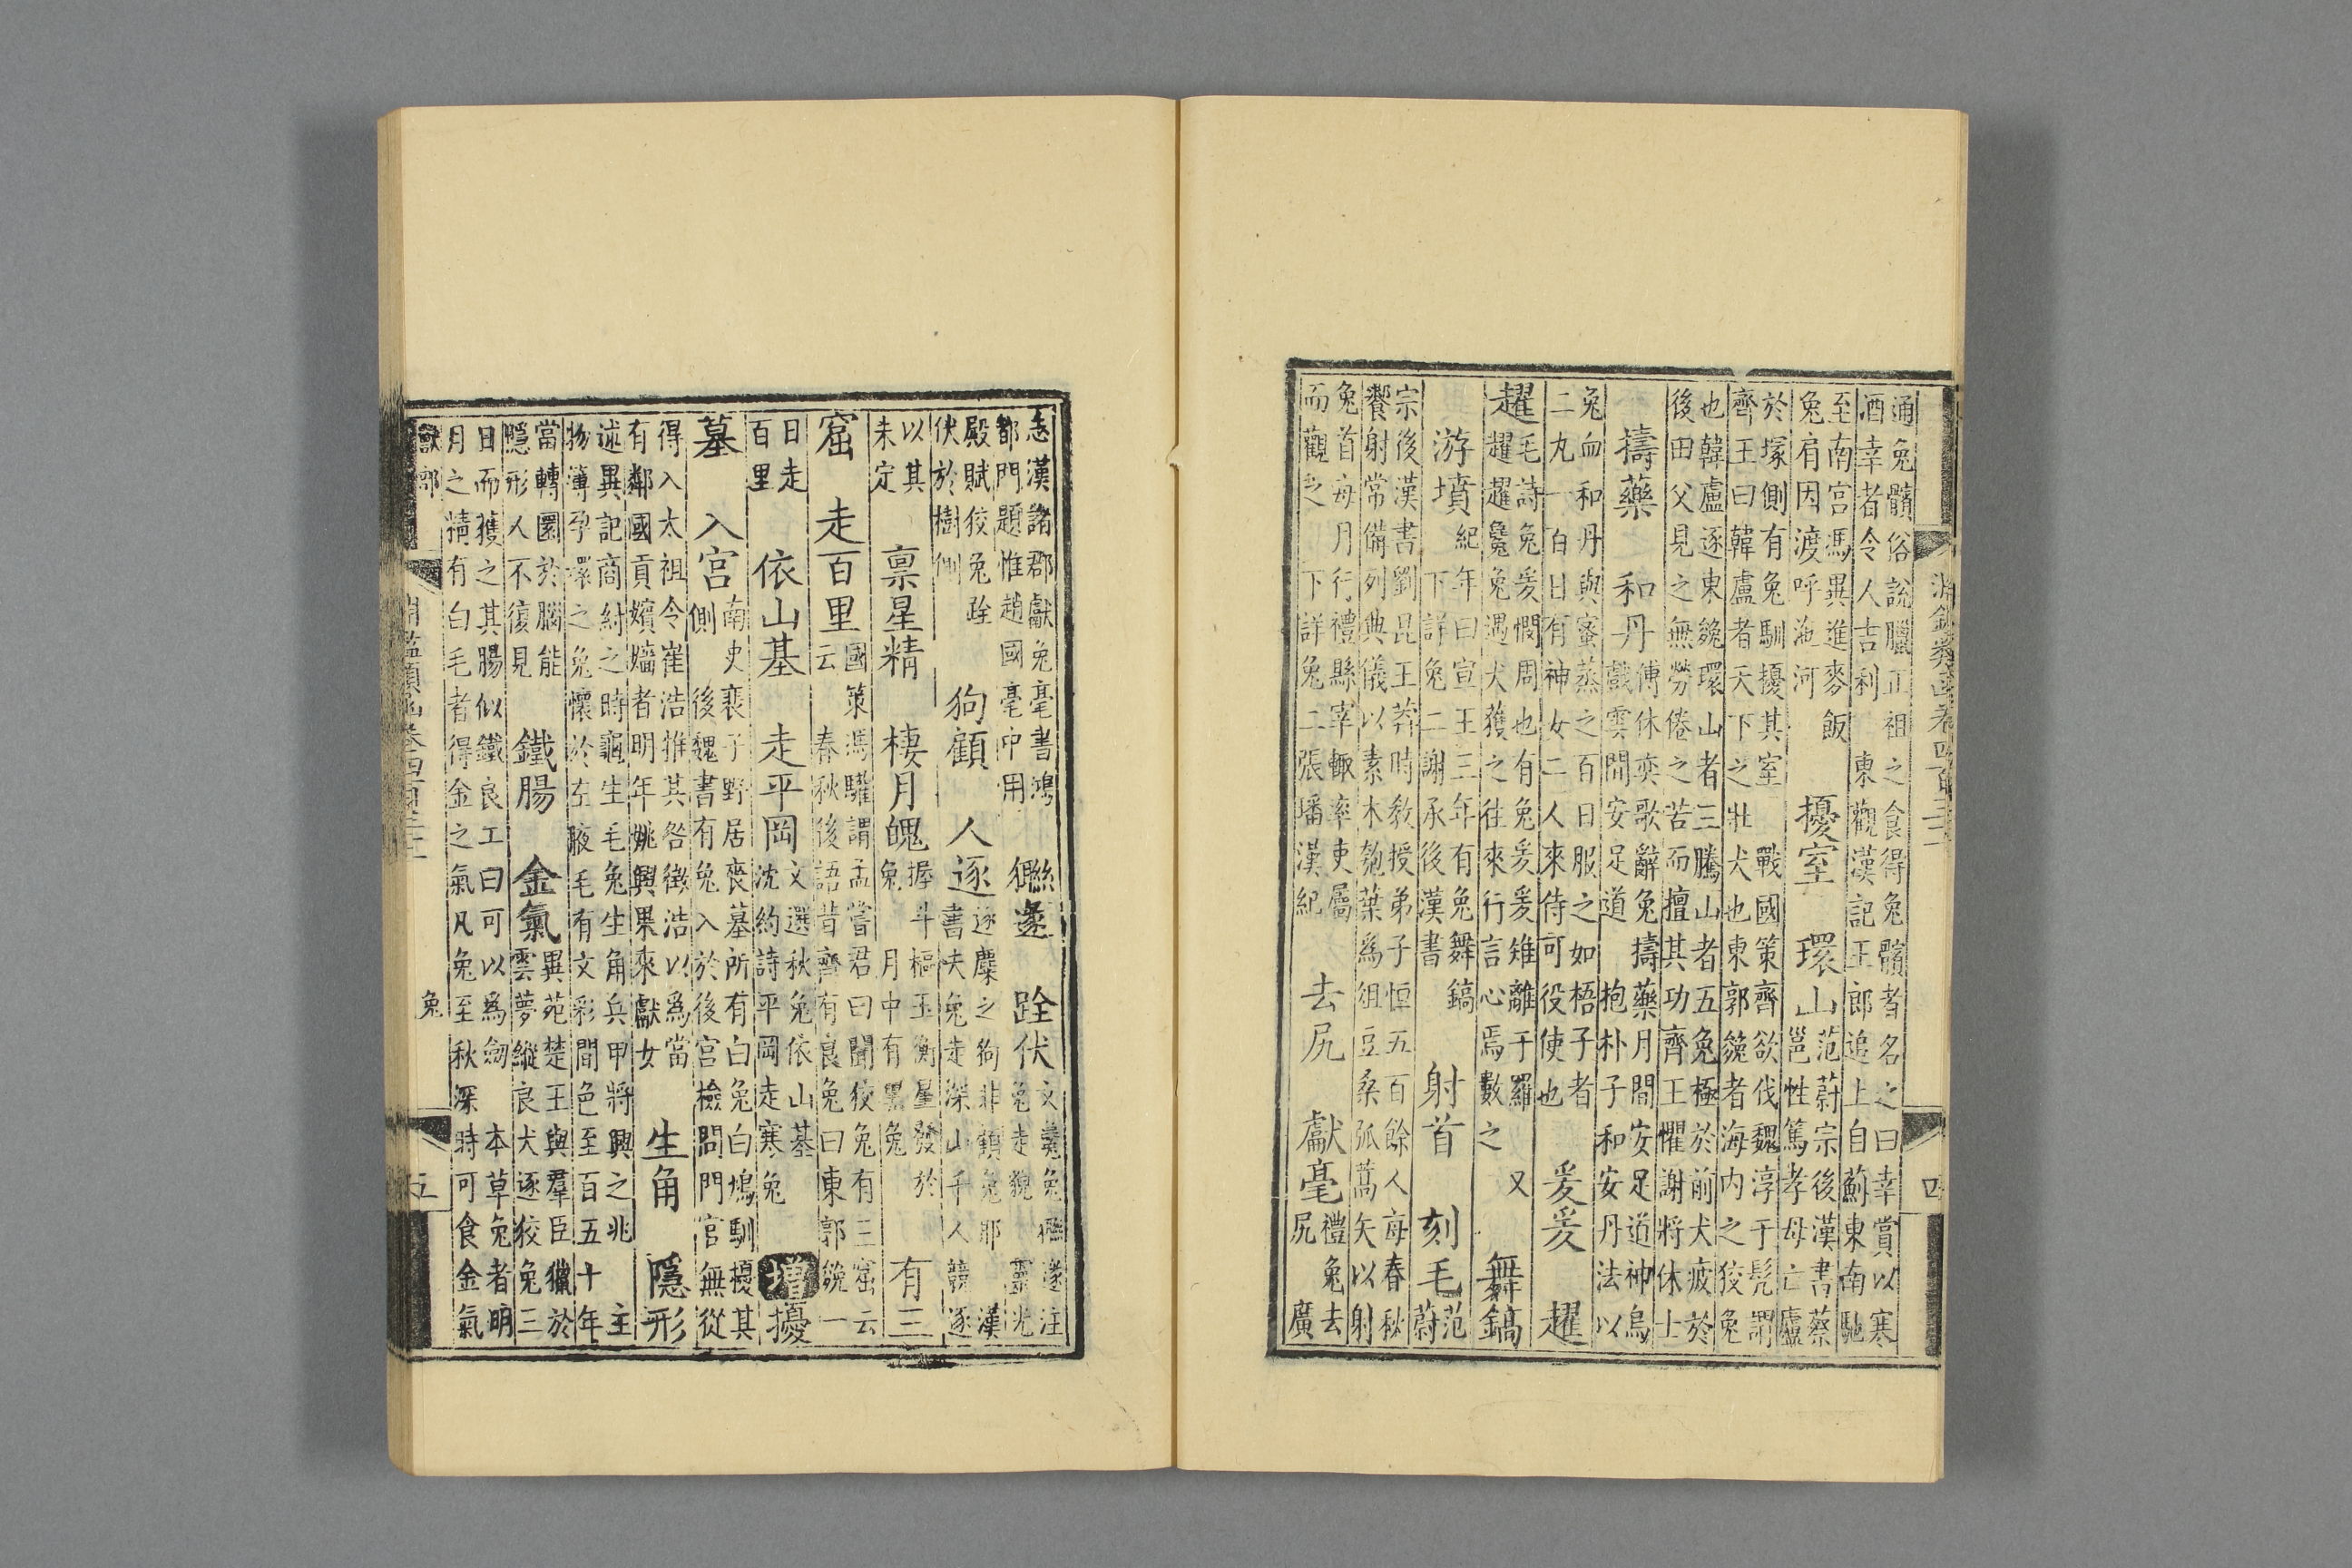 淵鑑類函卷四百三十一 四
通兔髕俗說臘正祖之食得兔髕者名之曰幸賞以寒
酒幸者令人吉利 東觀漢記王郎追上自薊東南馳
至南宮馮異進麥飯
兔肩因渡呼沲河
擾室 環山
范蔚宗後漢書蔡
邕性篤孝母亡廬
於塚側有兔馴擾其室 戰國策齊欲伐魏淳于髠謂
齊王曰韓盧者天下之壯犬也東郭㕙者海内之狡兔
也韓盧逐東㕙環山者三騰山者五兔極於前犬疲於
後田父見之無勞倦之苦而擅其功齊王懼謝將休士
擣藥 和丹
傅休奕歌辭兔擣藥月間安足道神烏
戲雲間安足道 抱朴子和安丹法以
兔血和丹與蜜蒸之百日服之如梧子者
二丸一百日有神女二人來侍可役使也
爰爰 趯
趯
毛詩兔爰憫周也有兔爰爰雉離于羅 又
趯趯毚兔遇犬獲之往來行言心焉數之
舞鎬
游墳
紀年曰宣王三年有兔舞鎬
下詳兔二謝承後漢書
射首 刻毛
范
蔚
宗後漢書劉昆王莽時教授弟子恒五百餘人每春秋
饗射常備列典儀以素木瓠葉為俎豆桑弧蒿矢以射
兔首每月行禮縣宰輙率吏屬
而觀之 下詳兔二張璠漢紀
去尻 獻毫
禮兔去
尻 廣
志漢諸郡獻兔毫書鴻
都門題惟趙國毫中用
逡 跧伏
兔 逡注
兔走貌 靈光
殿賦狡兔跧
伏於樹側
狗顧 人逐
逐麋之狗非顧兔耶 漢
書夫兔走深山千人競逐
以其
未定
禀星精 棲月魄
握斗樞玉衡星發於
兔 月中有黑兔
有三
窟 走百里
國策馮驩謂孟嘗君曰聞狡兔有三窟云
云 春秋後語昔齊有良兔曰東郭㕙一
日走
百里
依山基 走平岡
文選秋兔依山基
沈約詩平岡走寒兔
增 擾
墓 入宮
南史裴子野居喪墓所有白兔白鳩馴擾其
側 後魏書有兔入於後宮檢問門官無從
得入太祖令崔浩推其咎徵浩以為當
有鄰國貢嬪嬙者明年姚興果來獻女
生角 隱形
述異記商紂之時龜生毛兔生角兵甲將興之兆 主
物薄孕環之兔懷於左腋毛有文彩間色至百五十年
當轉圜於腦能
隱形人不復見
鐵腸 金氣
異苑楚王與羣臣獵於
雲夢縱良犬逐狡兔三
日而獲之其腸似鐵良工曰可以為劒 本草兔者明
月之精有白毛者得金之氣凡兔至秋深時可食金氣
淵鑑類函卷四百三十一
獸部 兔 五